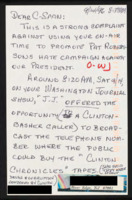 DEAR C-SPAN:
THIS IS A STRONG COMPLAINT
AGAINST USING YOUR ON-AIR
TIME TO PROMOTE PAT ROBERT-
SONS HATE CAMPAIGN AGAINST
OUR PRESIDENT.
AROUND 8:20 A.M., SAT
ON YOUR WASHINGTON JOURNAL
SHOW, "J.J." OFFERED THE
OPPORTUNITY (TO A CLINTON-
BASHER CALLER) TO BROAD-
CAST THE TELEPHONE
NUMBER WHERE THE PUBLIC
COULD BUY THE "CLINTON
CHRONICLES" TAPES